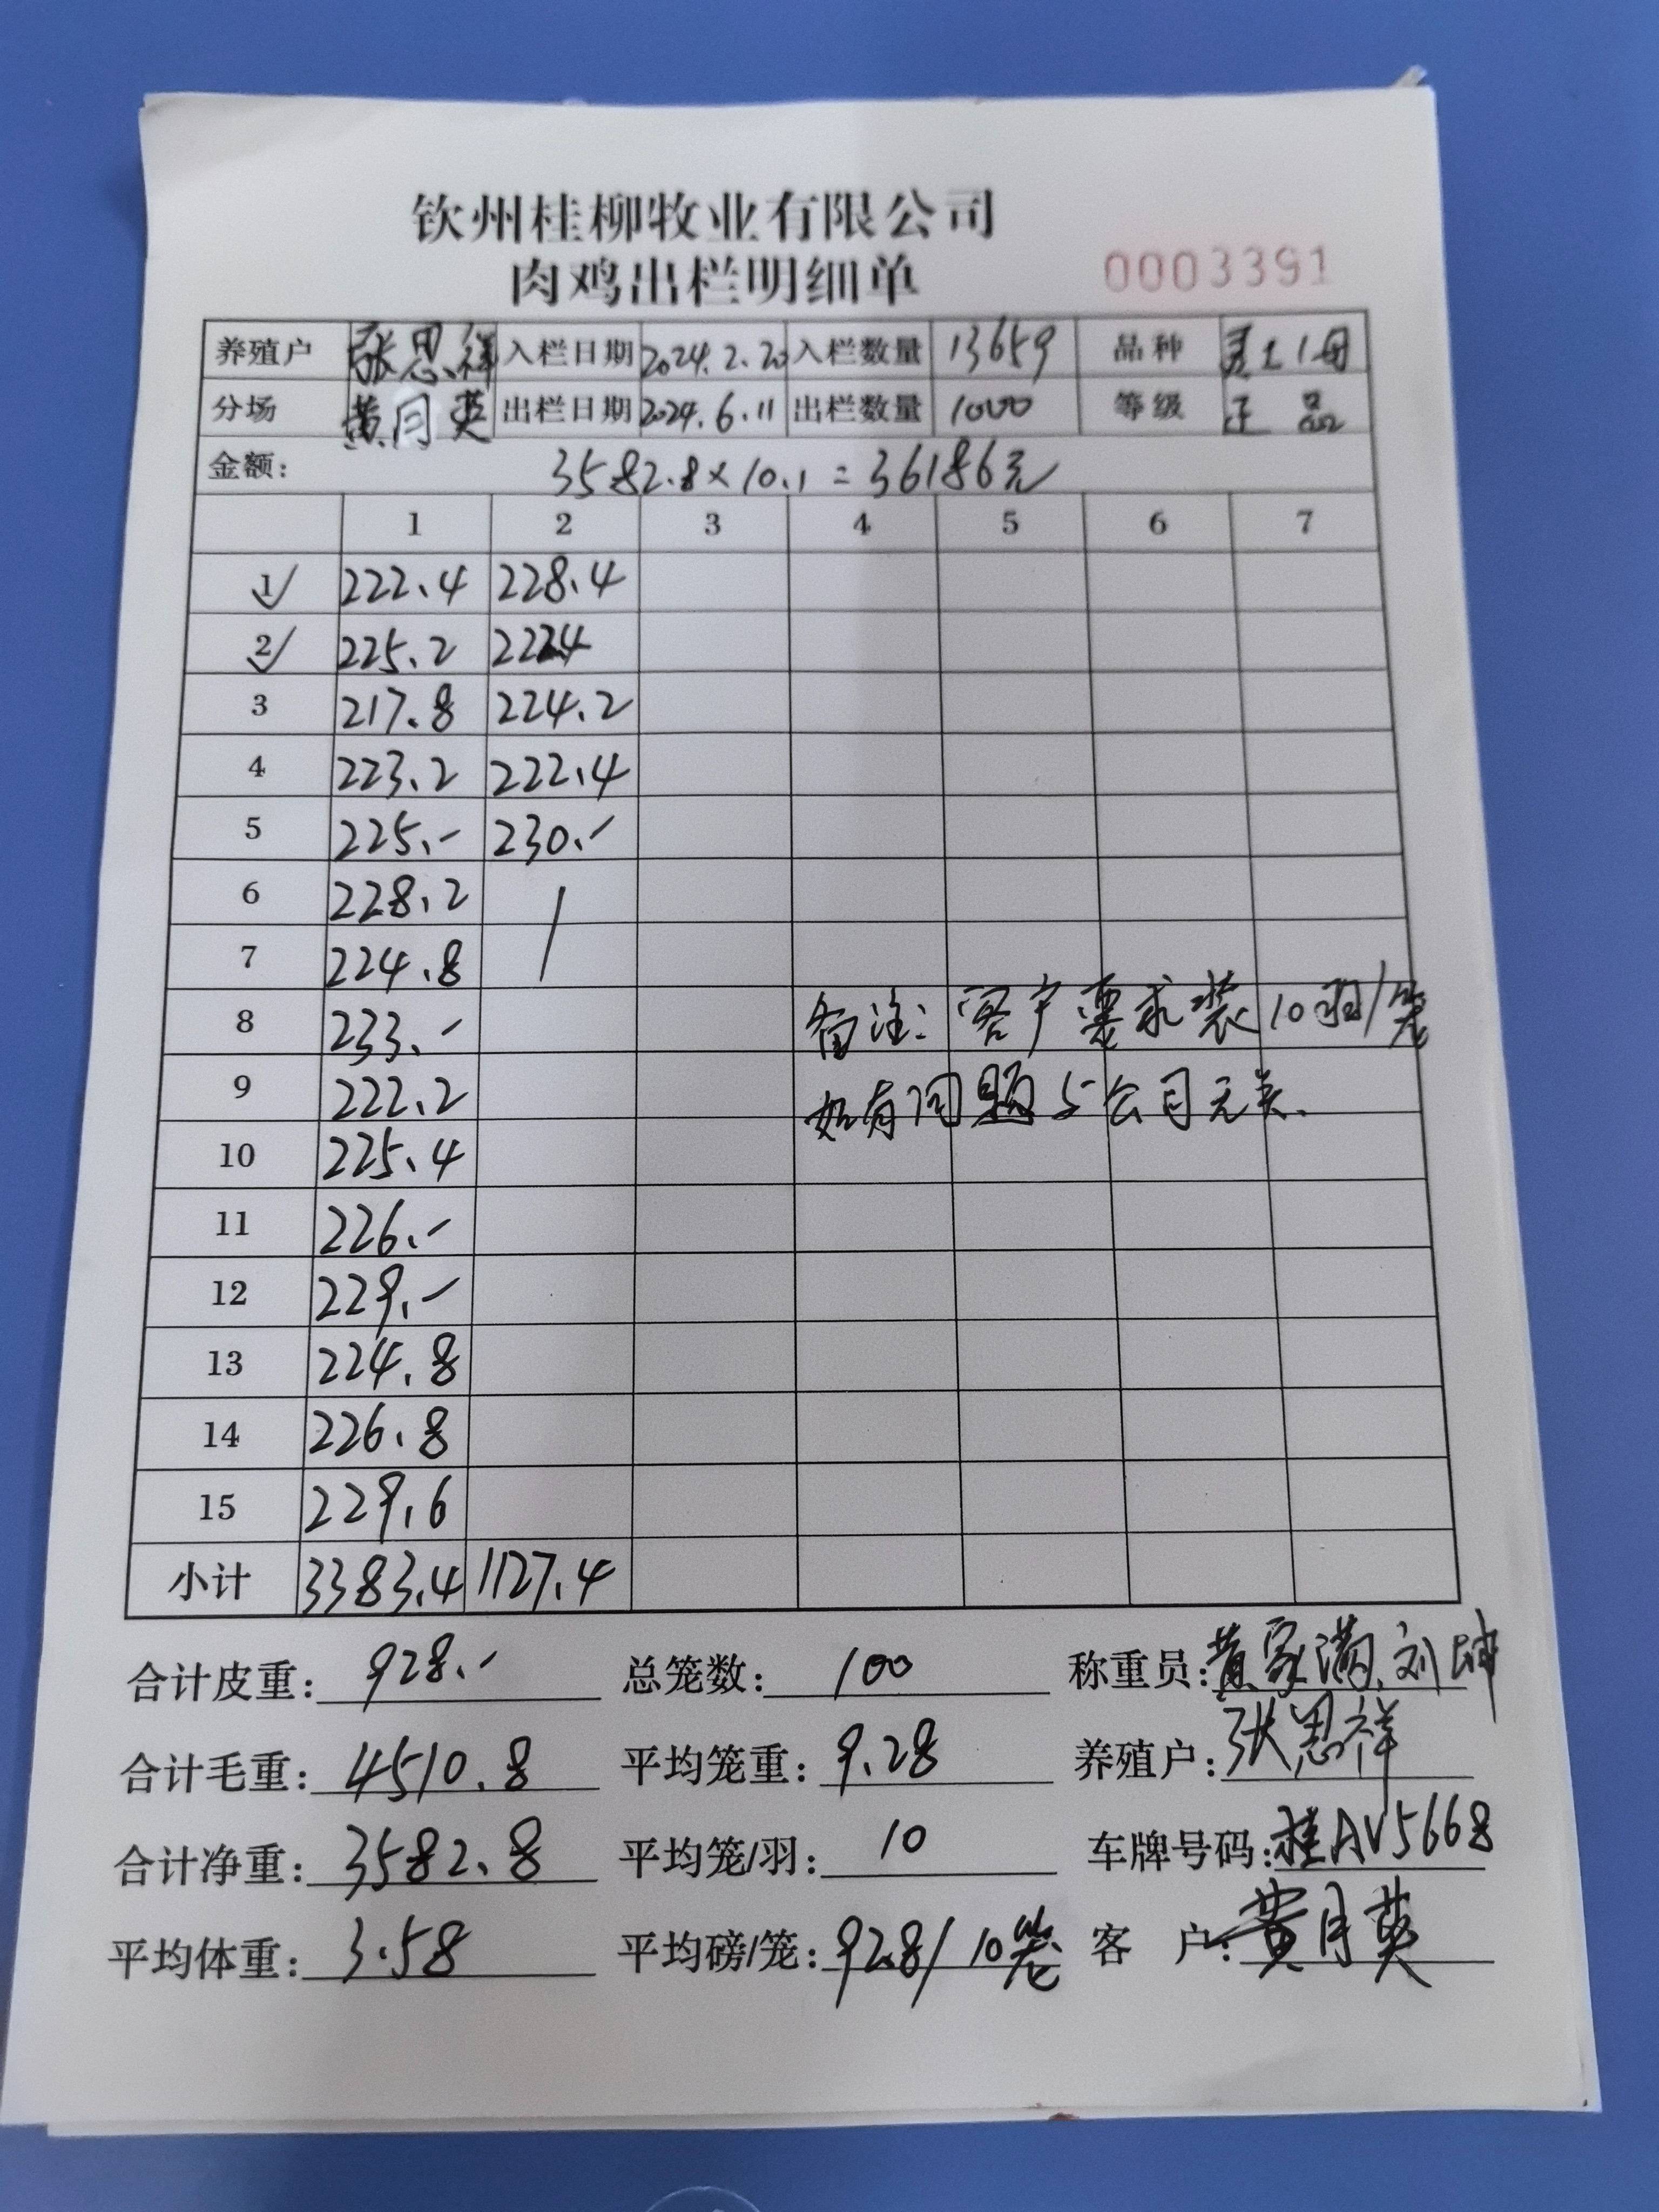 钦州桂柳牧业有限公司
肉鸡出栏明细单 0003391
养殖户 张思祥 入栏日期 2024.2.20 入栏数量 13659 品种 灵土1母
分场 黄月英 出栏日期 2024.6.11 出栏数量 1000 等级 正品
金额: 3582.8×10.1=36186元
1 2 3 4 5 6 7
1✓ 222.4 228.4
2✓ 225.2
3 217.8 224.2
4 223.2 222.4
5 225.- 230.-
6 228.2
7 224.8
8 233.- 备注:客户要求装10羽/笼
9 222.2 如有问题与公司无关.
10 225.4
11 226.-
12 229.-
13 224.8
14 226.8
15 229.6
小计 3383.4 1127.4
合计皮重: 928.- 总笼数: 100 称重员: 黄家满.刘坤
合计毛重: 4510.8 平均笼重: 9.28 养殖户: 张思祥
合计净重: 3582.8 平均笼/羽: 10 车牌号码: 桂AV5668
平均体重: 3.58 平均磅/笼: 92.8/10笼 客户: 黄月英